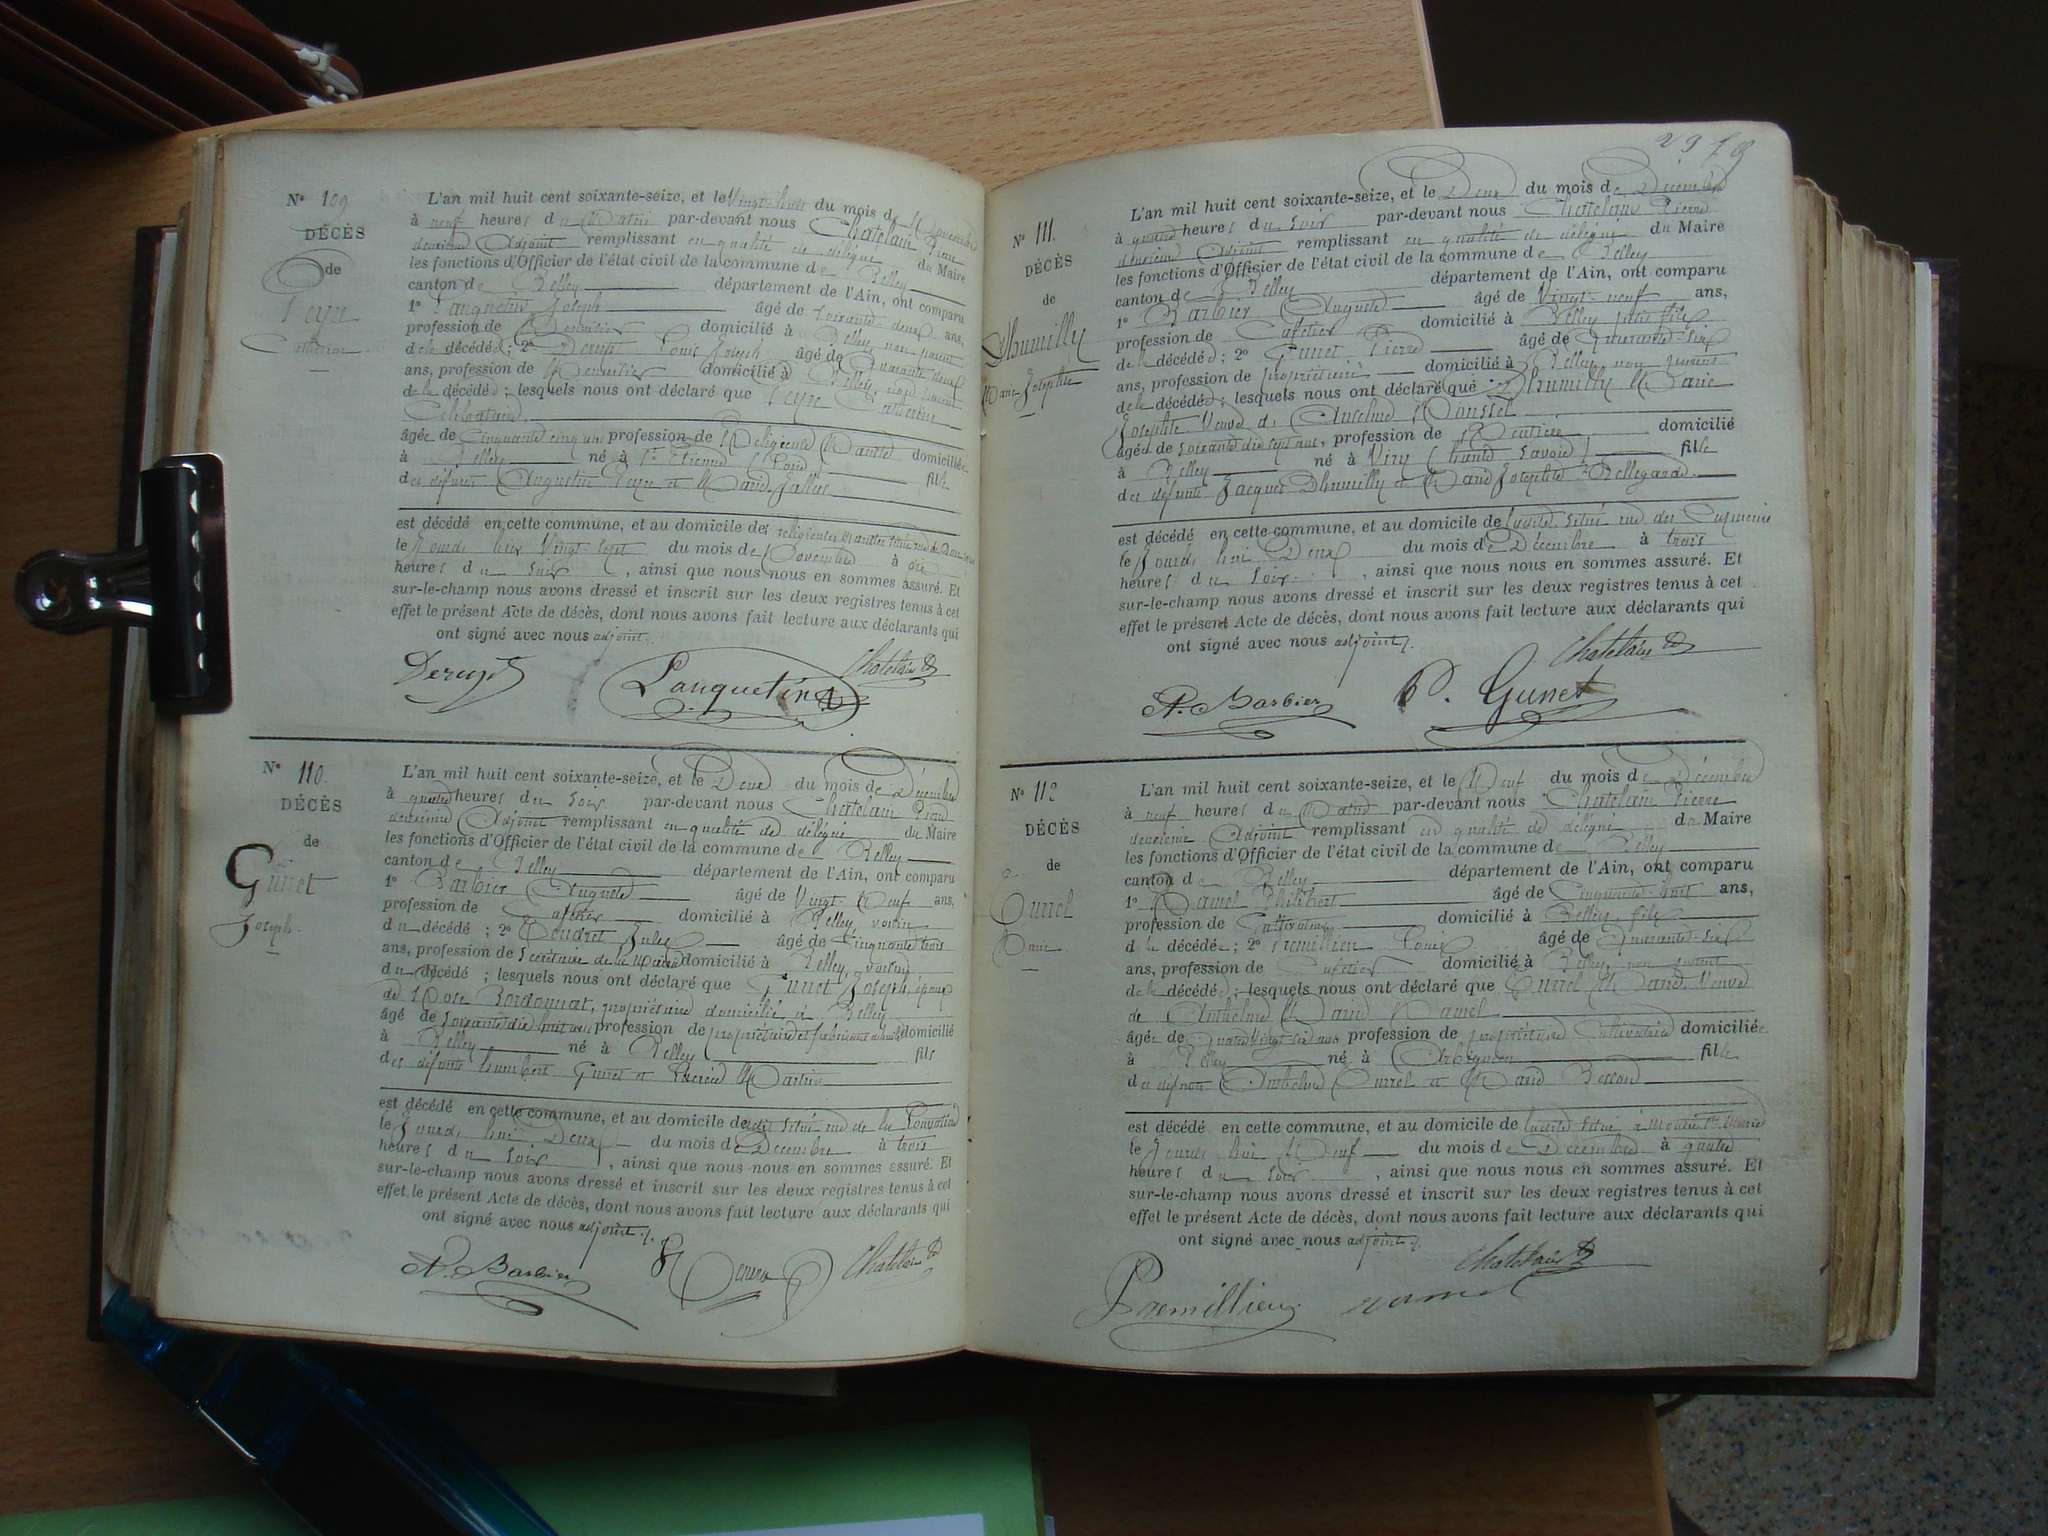 Nº 109
DÉCÈS
de
Catherine
L'an mil huit cent soixante-seize, et le Vingt-huit du mois de Novembre
à neuf heures du Matin par-devant nous Chatelain Pierre
deuxième Adjoint remplissant en qualité de délégué du Maire
les fonctions d'Officier de l'état civil de la commune de Belley
canton de Belley département de l'Ain, ont comparu
1º Lanquetin Joseph âgé de soixante deux ans,
profession de domicilié à Belley, non parent
de la décédée; 2º Louis Joseph âgé de quarante deux
ans, profession de domicilié à Belley, non parent
de la décédée; lesquels nous ont déclaré que Catherine
Célibataire
âgée de Cinquante cinq ans profession de Religieuse domiciliée
à Belley né à St Etienne (Loire) fille
des défunts Augustin et Marie
est décédé en cette commune, et au domicile des religieuses
le Jourd'hier Vingt-sept du mois de Novembre à
heures du soir, ainsi que nous nous en sommes assuré. Et
sur-le-champ nous avons dressé et inscrit sur les deux registres tenus à cet
effet le présent Acte de décès, dont nous avons fait lecture aux déclarants qui
ont signé avec nous adjoint.
Lanquetin Chatelain
Nº 110.
DÉCÈS
de
Gunet
Joseph
L'an mil huit cent soixante-seize, et le Deux du mois de Décembre
à quatre heures du soir par-devant nous Chatelain Pierre
deuxième Adjoint remplissant en qualité de délégué du Maire
les fonctions d'Officier de l'état civil de la commune de Belley
canton de Belley département de l'Ain, ont comparu
1º Barbier Auguste âgé de Vingt-Neuf ans,
profession de Cafetier domicilié à Belley, voisin
du décédé; 2º Jules âgé de Cinquante trois
ans, profession de Secrétaire de la Mairie domicilié à Belley, voisin
du décédé; lesquels nous ont déclaré que Gunet Joseph, époux
de Rose Bordonnat, propriétaire domiciliée à Belley
âgé de soixante dix huit ans profession de propriétaire domicilié
à Belley né à Belley fils
des défunts humbert Gunet et Lucrèce Martin
est décédé en cette commune, et au domicile de situé rue de la
le Jourd'hui Deux du mois de Décembre à trois
heures du soir, ainsi que nous nous en sommes assuré. Et
sur-le-champ nous avons dressé et inscrit sur les deux registres tenus à cet
effet le présent Acte de décès, dont nous avons fait lecture aux déclarants qui
ont signé avec nous adjoint.
A. Barbier Chatelain
Nº 111.
DÉCÈS
de
Dhumilly
Marie Josephte
L'an mil huit cent soixante-seize, et le Deux du mois de Décembre
à quatre heures du soir par-devant nous Chatelain Pierre
deuxième Adjoint remplissant en qualité de délégué du Maire
les fonctions d'Officier de l'état civil de la commune de Belley
canton de Belley département de l'Ain, ont comparu
1º Barbier Auguste âgé de Vingt-neuf ans,
profession de Cafetier domicilié à Belley, petit fils
de la décédée; 2º Gunet Pierre âgé de quarante-six
ans, profession de propriétaire domicilié à Belley non parent
de la décédée; lesquels nous ont déclaré que Dhumilly Marie
Josephte Veuve de Anselme Roussel
âgée de soixante dix sept ans, profession de Rentière domicilié
à Belley né à Viry (haute Savoie) fille
des défunts Jacques Dhumilly et Marie Josephte Bellegarde
est décédé en cette commune, et au domicile de situé rue des
le Jourd'hui Deux du mois de Décembre à trois
heures du soir, ainsi que nous nous en sommes assuré. Et
sur-le-champ nous avons dressé et inscrit sur les deux registres tenus à cet
effet le présent Acte de décès, dont nous avons fait lecture aux déclarants qui
ont signé avec nous adjoint.
Chatelain
A. Barbier P. Gunet
Nº 112
DÉCÈS
de
Marie
L'an mil huit cent soixante-seize, et le Neuf du mois de Décembre
à neuf heures du Matin par-devant nous Chatelain Pierre
deuxième Adjoint remplissant en qualité de délégué du Maire
les fonctions d'Officier de l'état civil de la commune de Belley
canton de Belley département de l'Ain, ont comparu
1º Philibert âgé de Cinquante-huit ans,
profession de Cultivateur domicilié à Belley, fils
de la décédée; 2º Premillieu Louis âgé de quarante-six
ans, profession de Cafetier domicilié à Belley, non parent
de la décédée; lesquels nous ont déclaré que Marie Veuve
de Anthelme
âgée de quatre vingt ans profession de propriétaire Cultivatrice domiciliée
à Belley né à Arbignieu fille
des défunts Anthelme et Marie
est décédé en cette commune, et au domicile de situé à
le Jourd'hui Neuf du mois de Décembre à quatre
heures du soir, ainsi que nous nous en sommes assuré. Et
sur-le-champ nous avons dressé et inscrit sur les deux registres tenus à cet
effet le présent Acte de décès, dont nous avons fait lecture aux déclarants qui
ont signé avec nous adjoint.
Chatelain
Premillieu